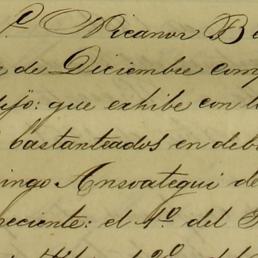 P.º Nicanor B
de Diciembre com
dijo: que exhibe con l
bastanteados en deb
ingo Ansoategui de
neciente: el 1º. del